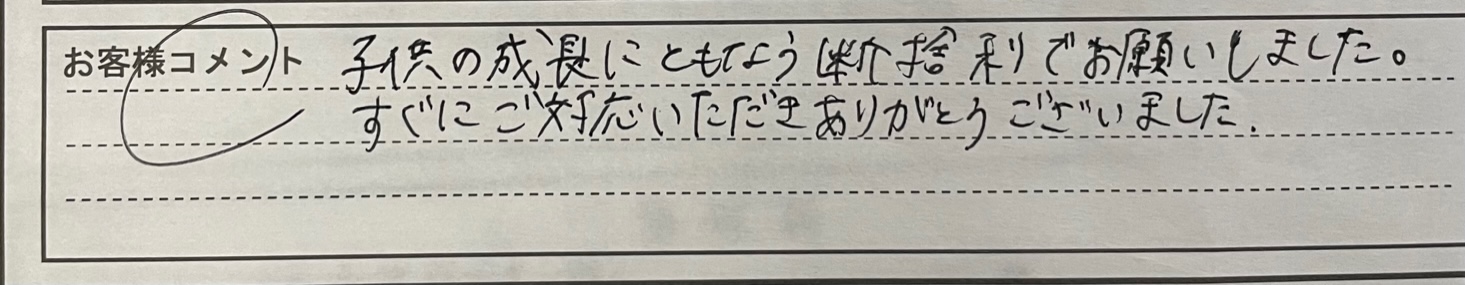 お客様コメント 子供の成長にともなう断捨利でお願いしました。
すぐにご対応いただきありがとうございました.